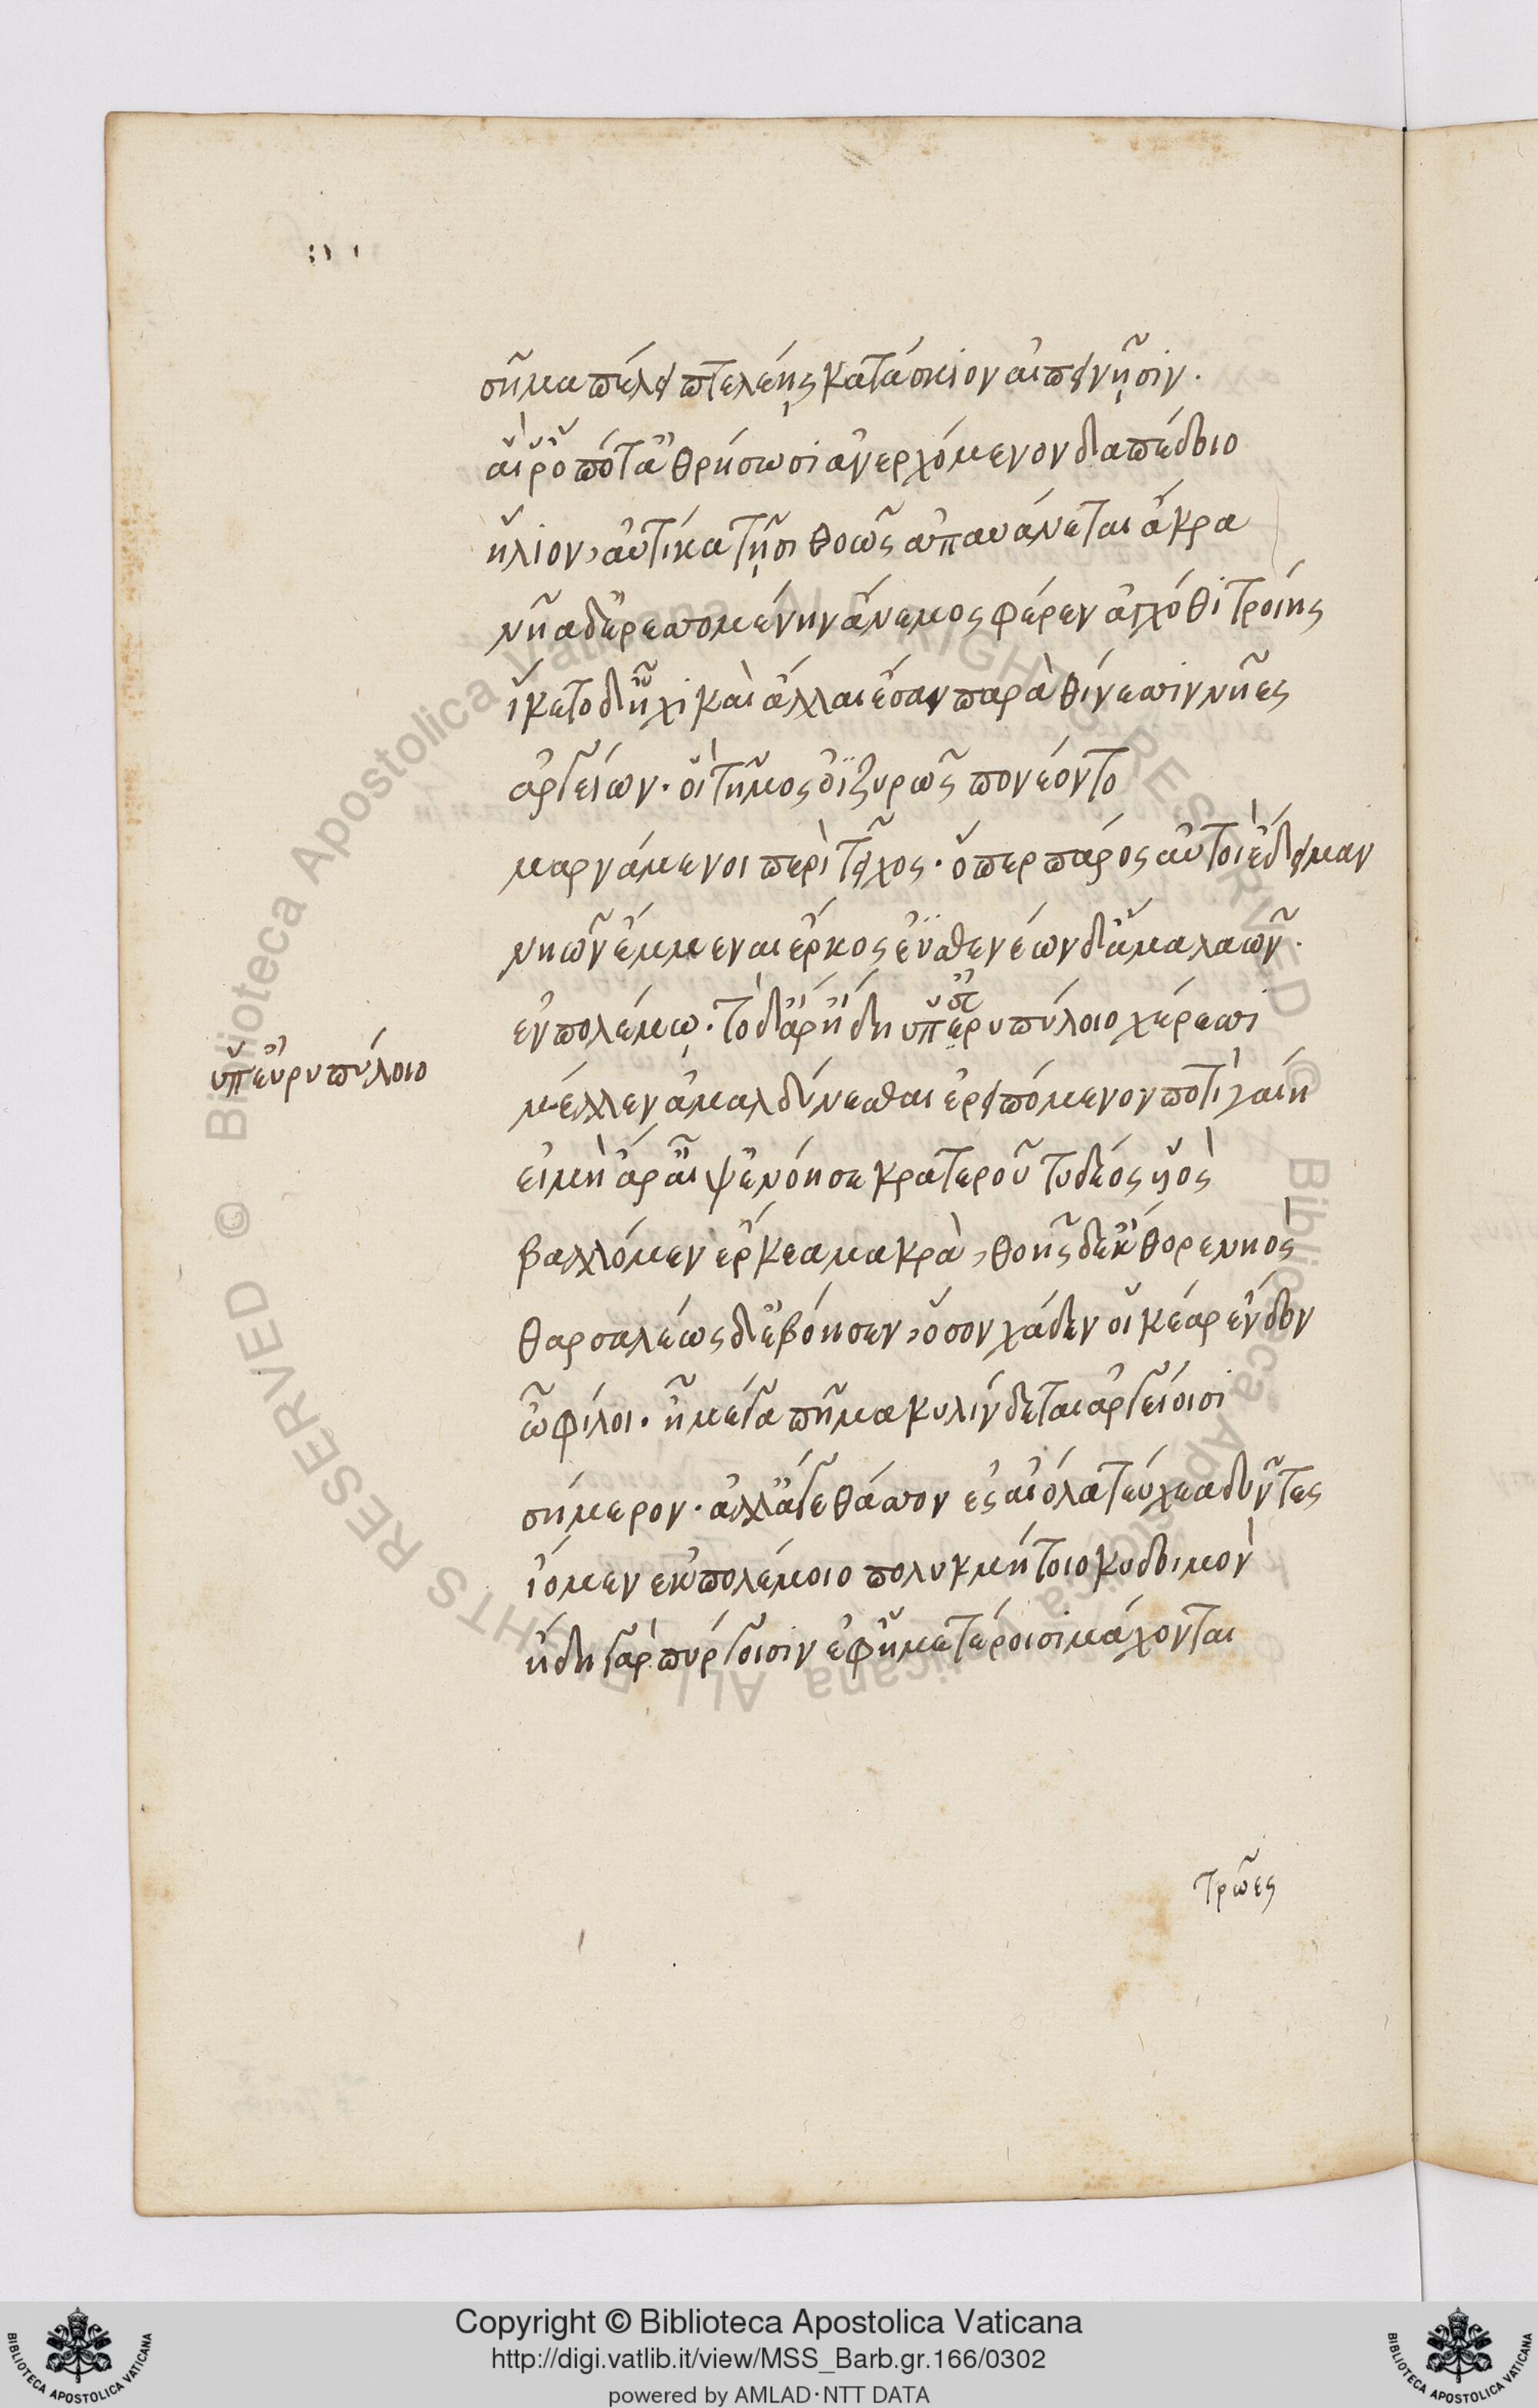 σῆμα πέλει πτελέῃς κατάσκιον αἰπεινῇσιν.
αἳ ῥ' ὁπότ' ἀθρήσωσι ἀνερχόμενον δαπέδοιο
ἥλιον, αὐτίκα τῇσι θοῶς ἀπαυαίνεται ἄκρα
νῆα δ' ἐρεσσομένην ἄνεμος φέρεν ἀγχόθι τροίης
ἵκετο δ' ἧχι καὶ ἄλλαι ἔσαν παρὰ θίνεσσιν νῆες
ἀργείων. οἳ τῆμος ὀϊζυρῶς πονέοντο
μαρνάμενοι περὶ τεῖχος. ὅπερ πάρος αὐτοὶ ἔδειμαν
νηῶν ἔμμεναι ἕρκος ἐϋσθενέων δ' ἅμα λαῶν.
ἐν πολέμῳ. τὸ δ' ἄρ' ἤδη ὑπ' ἐρυπύλοιο χέρεσσι
ὑπ' εὐρυπύλοιο
μέλλεν ἀμαλδύνεσθαι ἐρειπόμενον ποτὶ γαίη
εἰ μὴ ἄρ' αἶψ' ἐνόησε κρατεροῦ τυδέος υἱὸς
βαλλόμεν' ἕρκεα μακρὰ, θοῆς δ' ἐκθορε νηὸς
θαρσαλέως δ' ἐβόησεν, ὅσον χάδεν οἱ κέαρ ἔνδον
ὦ φίλοι. ἦ μέγα πῆμα κυλίνδεται ἀργείοισι
σήμερον. ἀλλ' ἄγε θάσσον ἐς αἰόλα τεύχεα δῦντες
ἴομεν ἐκ πολέμοιο πολυκμήτοιο κυδοιμὸν
ἤδη γὰρ πύργοισιν ἐφ' ἡμετέροισι μάχονται
τρῶες
Copyright © Biblioteca Apostolica Vaticana
http://digi.vatlib.it/view/MSS_Barb.gr.166/0302
powered by AMLAD·NTT DATA